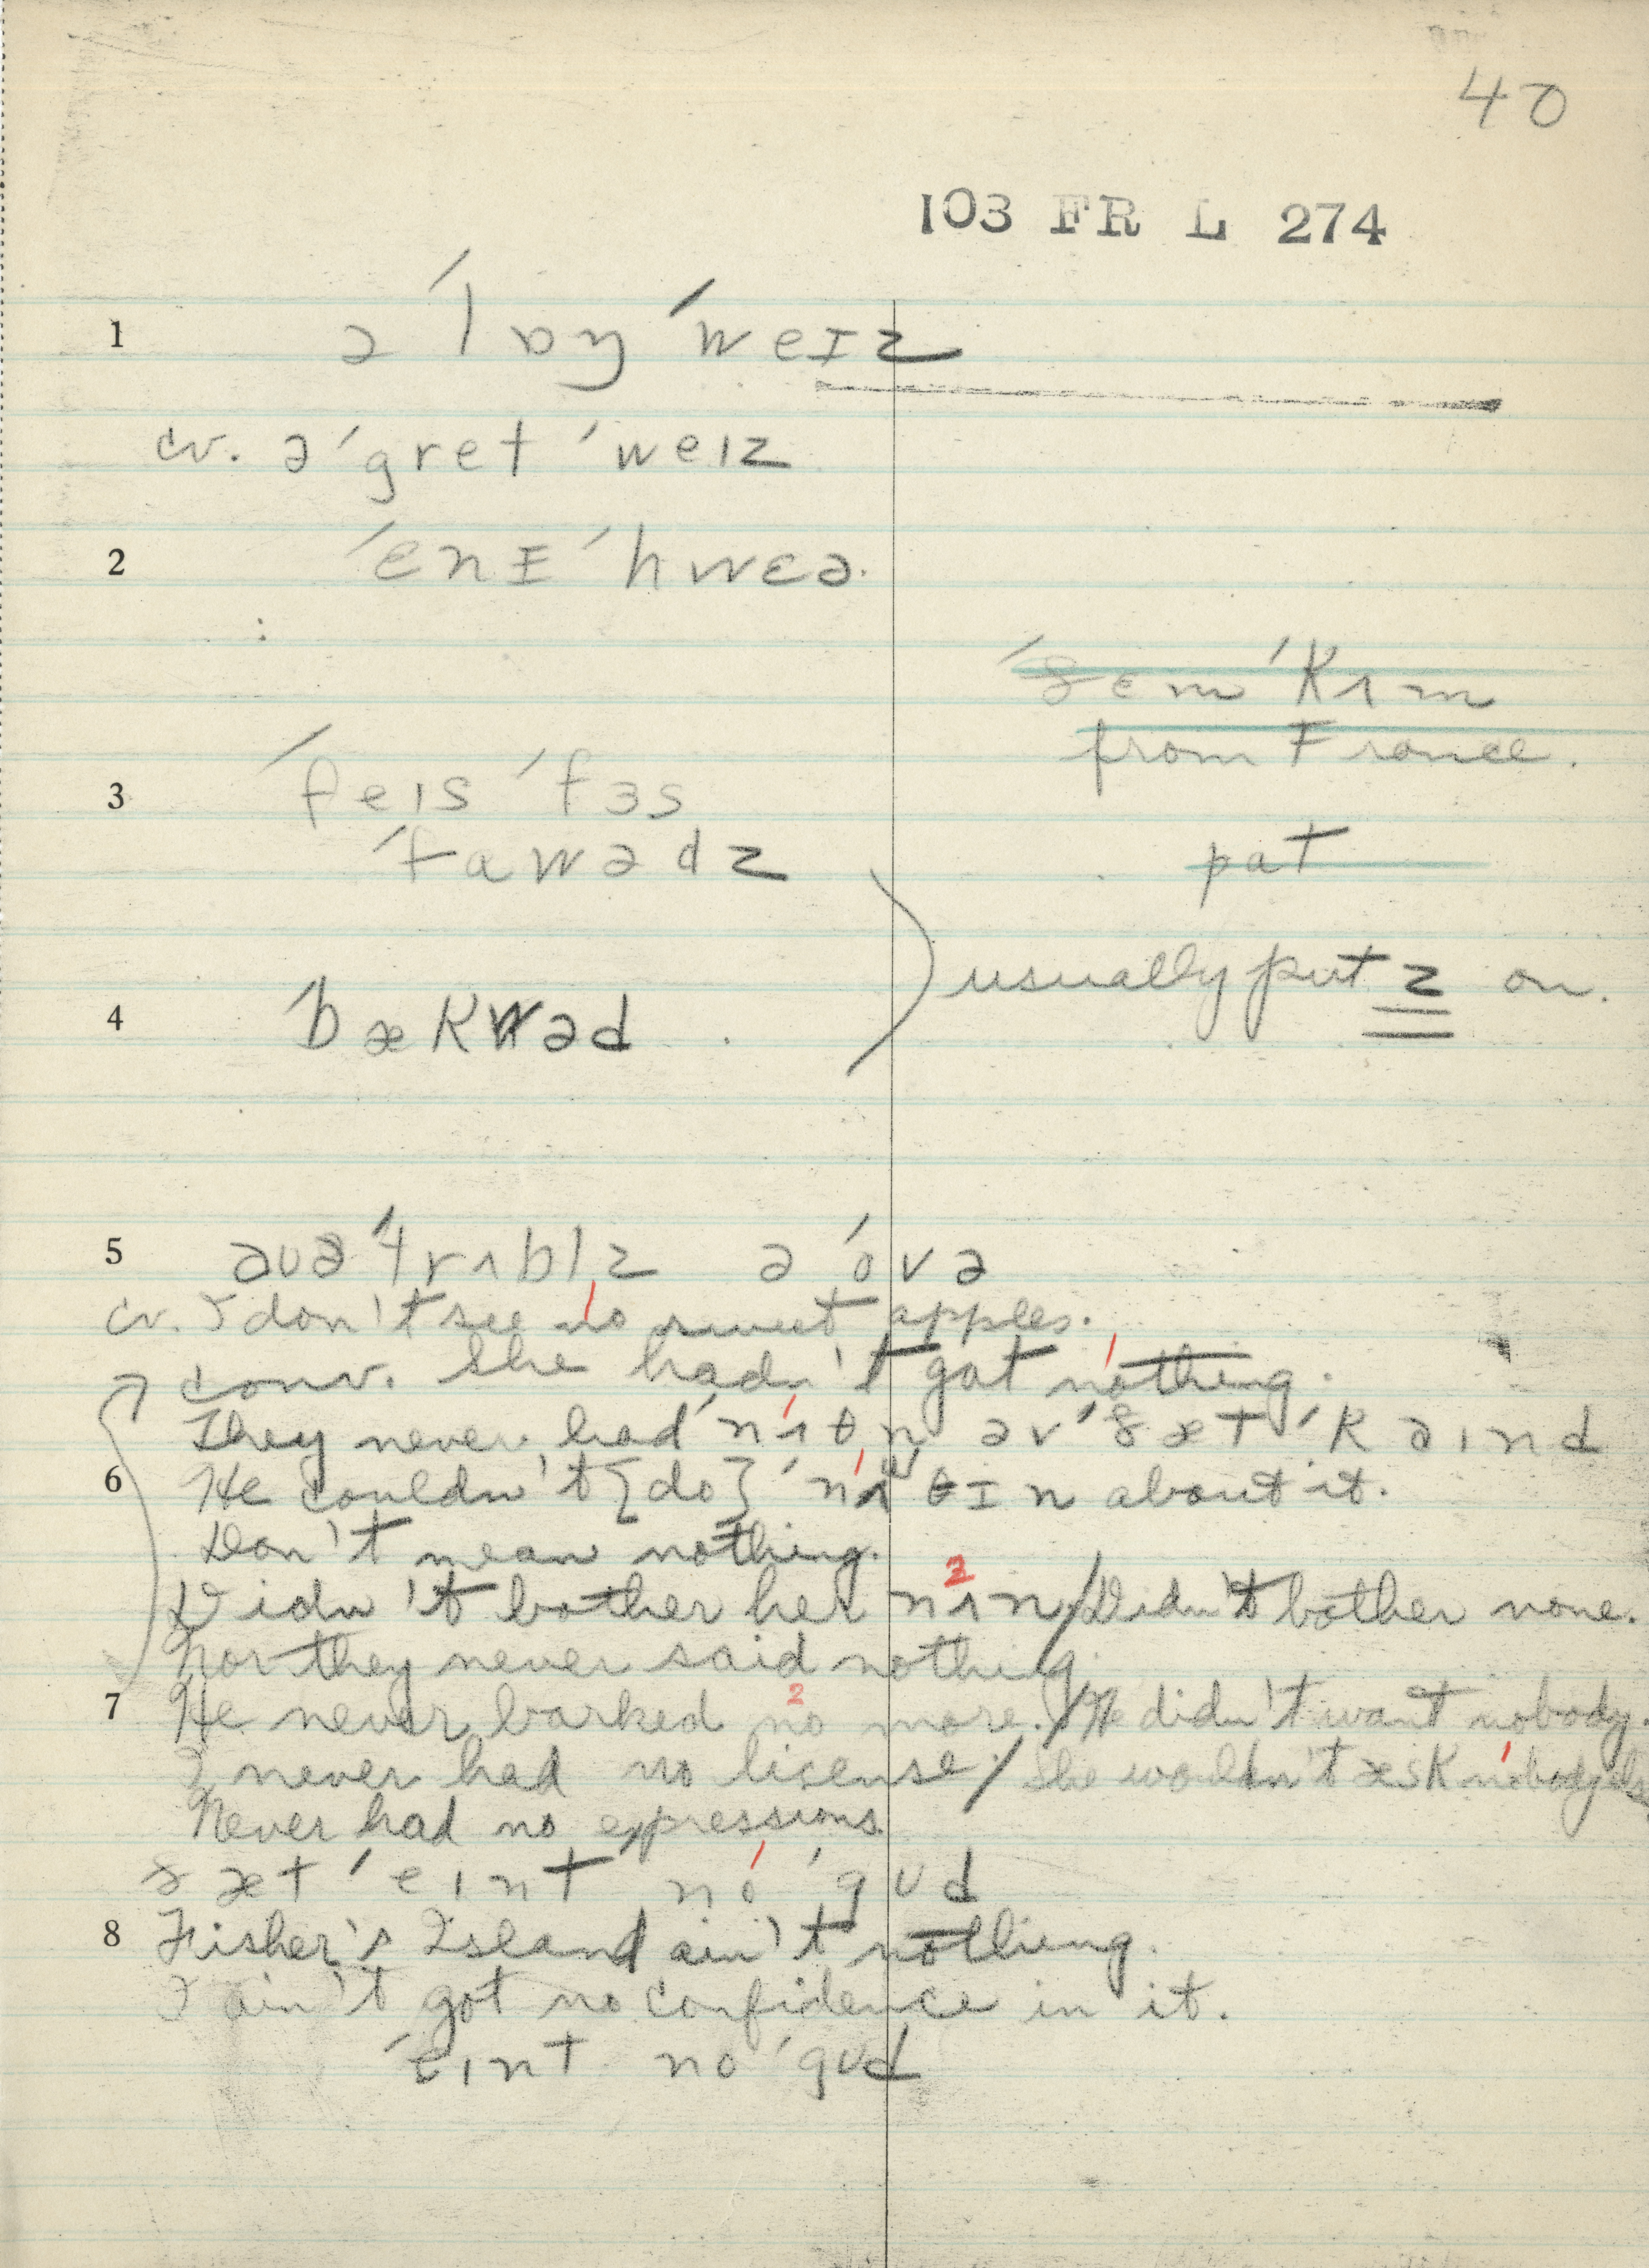 40
103 FR L 274
1 ə ˈlɒŋ ˈweɪz
cv. ə ˈgret ˈweɪz
2 ˈɛnɪ ˈhwɛə.
ˈðem ˈkʌm
from France.
3 ˈfeɪs ˈfɜs
ˈfɑwədz
pat
usually put z on.
4 ˈbækwəd
5 ˈtrʌblz ə ˈovə
cv. I don't see no sweet apples.
conv. She hadn't got nothing.
They never had ˈnʌθn əv ˈðæt ˈkaɪnd
6 He couldn't {do} ˈnʌθɪn about it.
Don't mean nothing.
Didn't bother her nʌn / Didn't bother none.
2
Nor they never said nothing.
7 He never barked no more. / He didn't want nobody.
2
I never had no license / She wouldn't æsk nobody else
Never had no expressions.
ðæt ˈeɪnt no ˈgʊd
8 Fisher's Island ain't nothing.
I ain't got no confidence in it.
ˈeɪnt no ˈgʊd